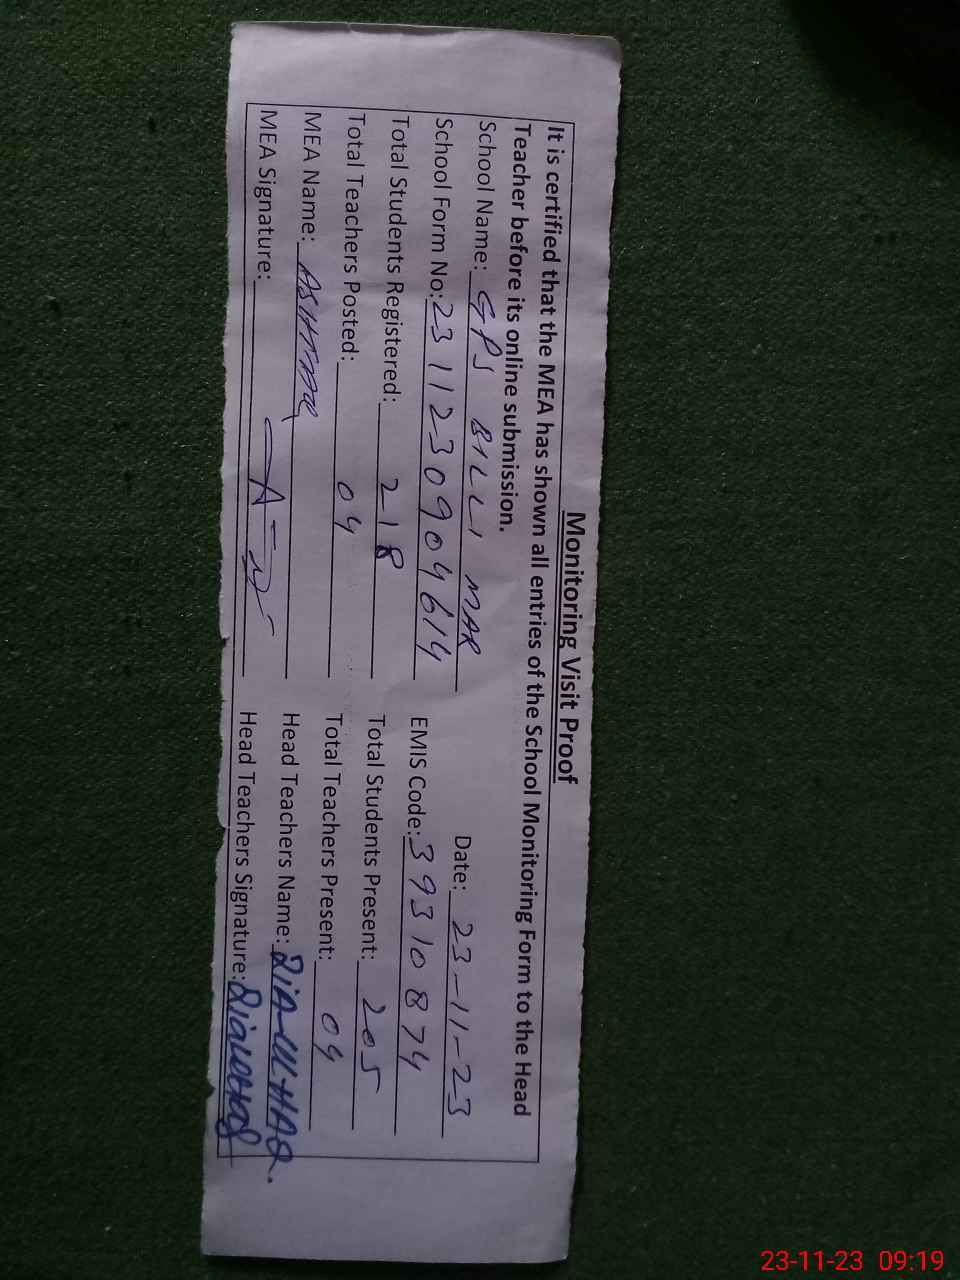 Monitoring Visit Proof
It is certified that the MEA has shown all entries of the School Monitoring Form to the Head
Teacher before its online submission.
School Name: GPS BILLI MAR Date: 23-11-23
School Form No: 2311230904614 EMIS Code: 39310874
Total Students Registered: 218 Total Students Present: 205
Total Teachers Posted: 04 Total Teachers Present: 04
MEA Name: Head Teachers Name: ZIA-UL-HAQ.
MEA Signature: Head Teachers Signature:
23-11-23 09:19